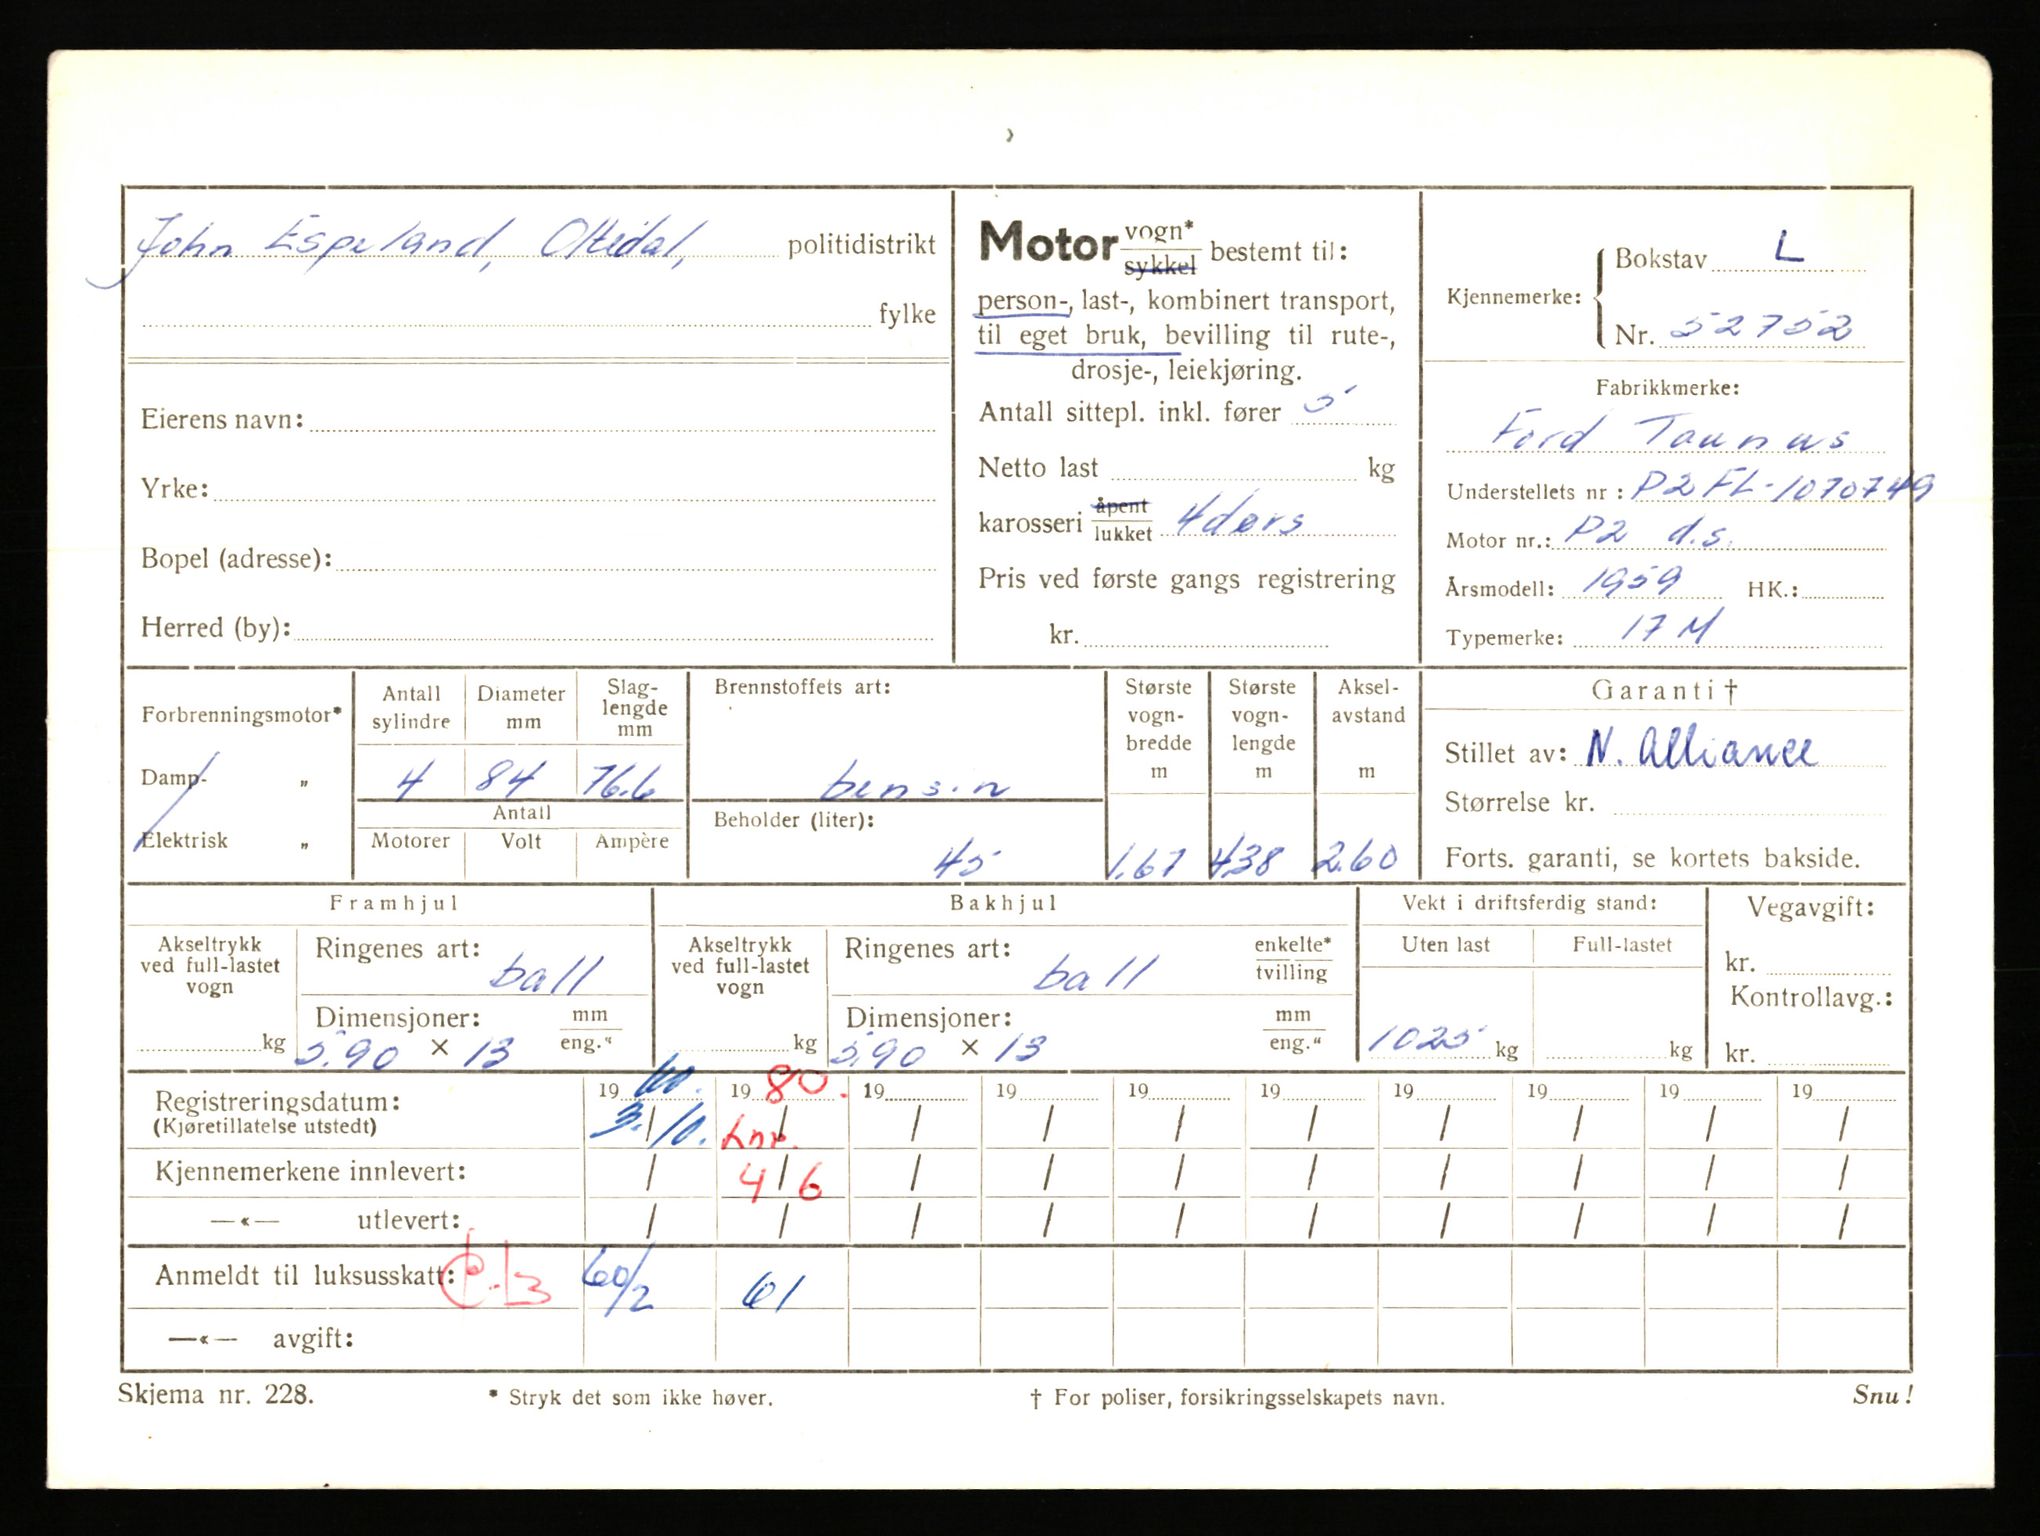 John Espeland, Oltedal, politidistrikt
fylke
Eierens navn:
Yrke:
Bopel (adresse):
Herred (by):
Motor vogn* sykkel bestemt til:
person-, last-, kombinert transport,
til eget bruk, bevilling til rute-,
drosje-, leiekjøring.
Antall sittepl. inkl. fører 5
Netto last kg
karosseri åpent lukket 4dørs
Pris ved første gangs registrering
kr.
Kjennemerke: Bokstav L
Nr. 52752
Fabrikkmerke:
Ford Taunus
Understellets nr : P2 FL-1070749
Motor nr.: P2 d.s.
Årsmodell: 1959 HK.:
Typemerke: 17 M
Forbrenningsmotor*
Damp- „
Elektrisk „
Antall sylindre Diameter mm Slag-lengde mm
4 84 76.6
Antall
Motorer Volt Ampère
Brennstoffets art:
bensin
Beholder (liter):
45
Største vogn-bredde m Største vogn-lengde m Aksel-avstand m
1.67 4.38 2.60
Garanti †
Stillet av: N. Alliance
Størrelse kr.
Forts. garanti, se kortets bakside.
Framhjul
Akseltrykk ved full-lastet vogn
kg
Ringenes art:
ball
Dimensjoner: mm eng."
5.90 × 13
Bakhjul
Akseltrykk ved full-lastet vogn
kg
Ringenes art: enkelte* tvilling
ball
Dimensjoner: mm eng."
5.90 × 13
Vekt i driftsferdig stand:
Uten last Full-lastet
1025 kg kg
Vegavgift:
kr.
Kontrollavg.:
kr.
19 60. 19 80. 19 19 19 19 19 19 19 19
Registreringsdatum: 3./10. Lnr. / / / / / / / /
(Kjøretillatelse utstedt)
Kjennemerkene innlevert: / 4/6 / / / / / / / /
—«— utlevert: / / / / / / / / / /
Anmeldt til luksusskatt: 60/2 61
—«— avgift:
Skjema nr. 228. * Stryk det som ikke høver. † For poliser, forsikringsselskapets navn. Snu!